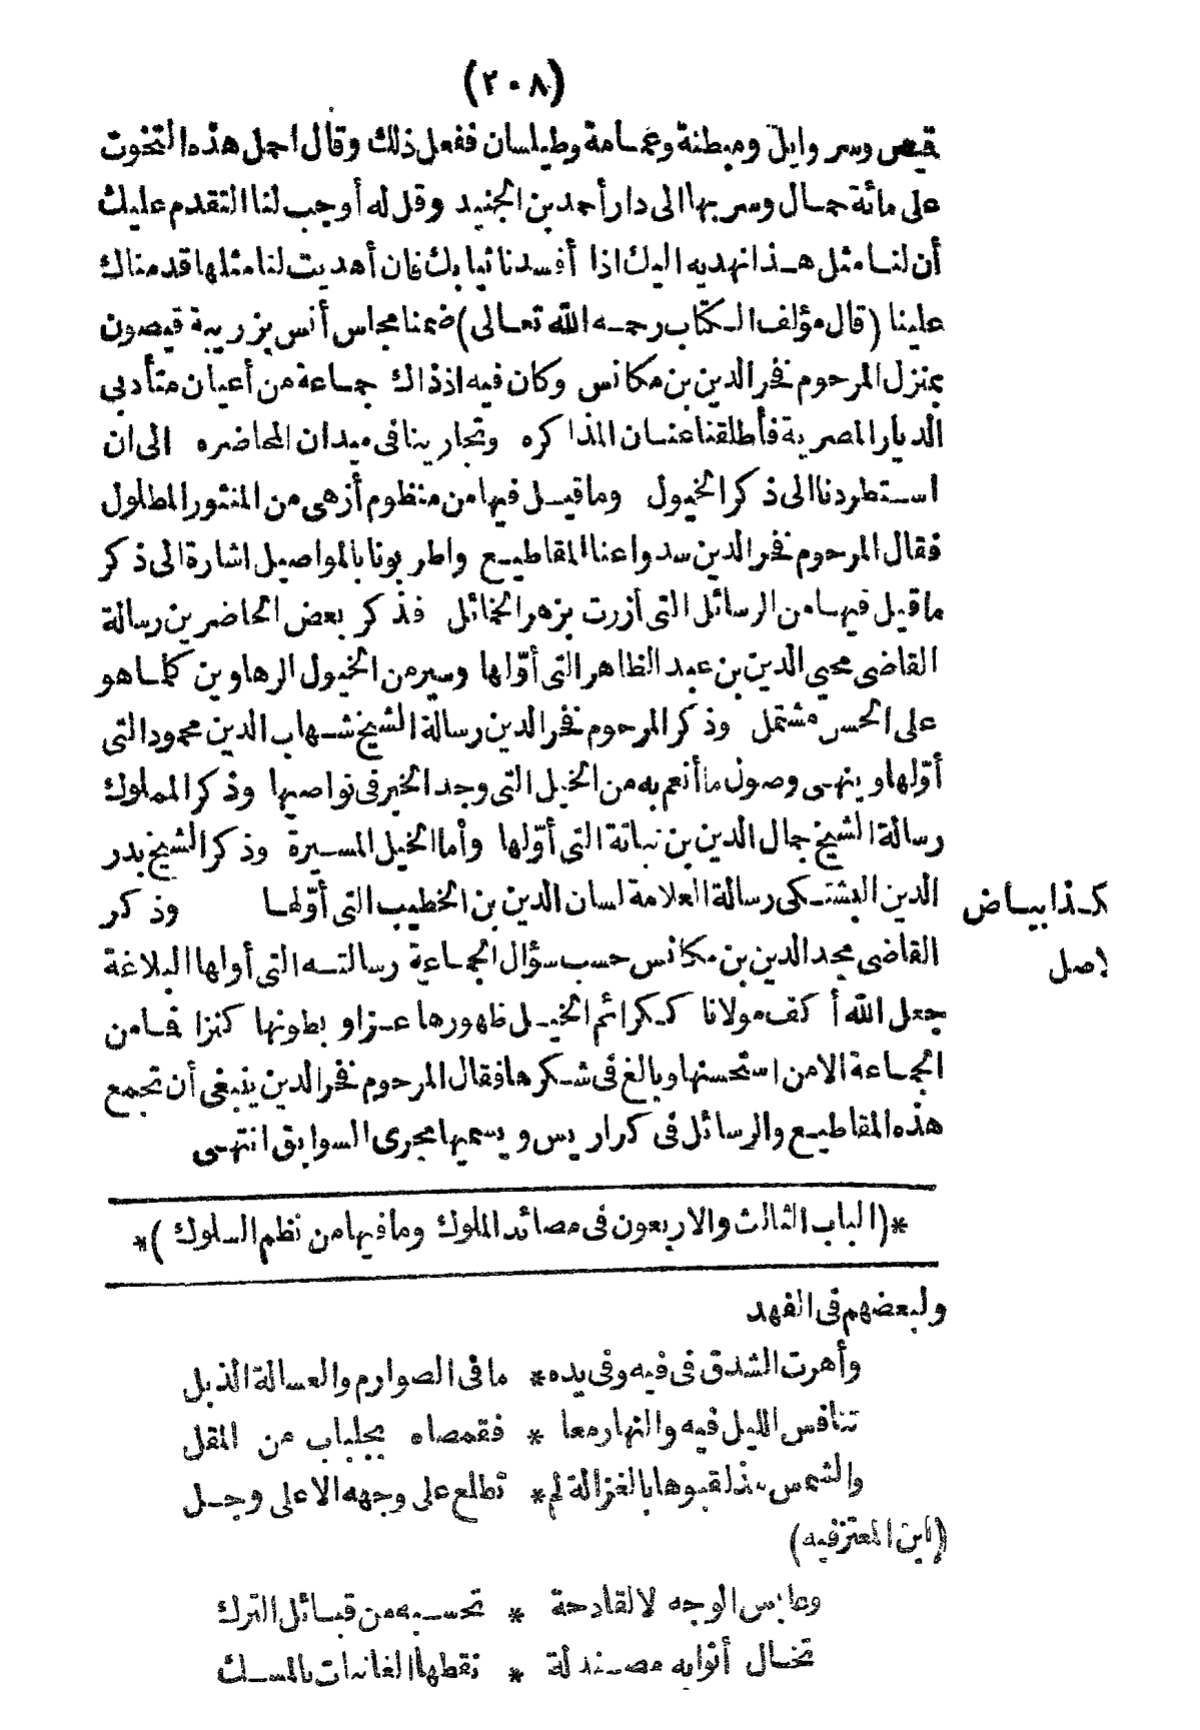 (٢٠٨)
قميص وسراويل ومبطنة وعمامة وطيلسان ففعل ذلك وقال احمل هذه التخوت
على مائة جمال وسر بها الى دار أحمد بن الجنيد وقل له أوجب لنا التقدم عليك
أن لنا مثل هذا نهديه اليك اذا أفسدنا ثيابك فان أهديت لنا مثلها قدمناك
علينا (قال مؤلف الكتاب رحمه الله تعالى) ضمنا مجلس أنس بزريبة قيصون
بمنزل المرحوم فخر الدين بن مكانس وكان فيه اذ ذاك جماعة من أعيان متأدبى
الديار المصرية فأطلقنا عنان المذاكره وتجارينا فى ميدان المحاضره الى ان
استطردنا الى ذكر الخيول وما قيل فيها من منظوم أزهى من المنثور المطلول
فقال المرحوم فخر الدين سدوا عنا المقاطيع واطربونا بالمواصيل اشارة الى ذكر
ما قيل فيها من الرسائل التى أزرت بزهر الخمائل فذكر بعض الحاضرين رسالة
القاضى محيى الدين بن عبد الظاهر التى أوّلها وسير من الخيول الرهاوين كلما هو
على الحسن مشتمل وذكر المرحوم فخر الدين رسالة الشيخ شهاب الدين محمود التى
أوّلها وينهى وصول ما أنعم به من الخيل التى وجد الخير فى نواصيها وذكر المملوك
رسالة الشيخ جمال الدين بن نباتة التى أوّلها وأما الخيل المسيرة وذكر الشيخ بدر
الدين البشتكى رسالة العلامة لسان الدين بن الخطيب التى أوّلها وذكر
كذا بياض
القاضى مجد الدين بن مكانس حسب سؤال الجماعة رسالته التى أولها البلاغة
لاصل
جعل الله أكف مولانا ككرائم الخيل ظهورها عزا وبطونها كنزا فما من
الجماعة الا من استحسنها وبالغ فى شكرها فقال المرحوم فخر الدين ينبغى أن تجمع
هذه المقاطيع والرسائل فى كراريس ويسميها مجرى السوابق انتهى
*(الباب الثالث والاربعون فى مصائد الملوك وما فيها من نظم السلوك)*
ولبعضهم فى الفهد
وأهرت الشدق فى فيه وفى يده * ما فى الصوارم والعسالة الذبل
تنافس الليل فيه والنهار معا * فقمصاه بجلباب من المقل
والشمس مذ لقبوها بالغزالة لم * تطلع على وجهه الا على وجل
(ابن المعتز فيه)
وعابس الوجه لا لقادحة * تحسبه من قبائل الترك
تخال أثوابه مصندلة * نقطها الغانيات بالمسك